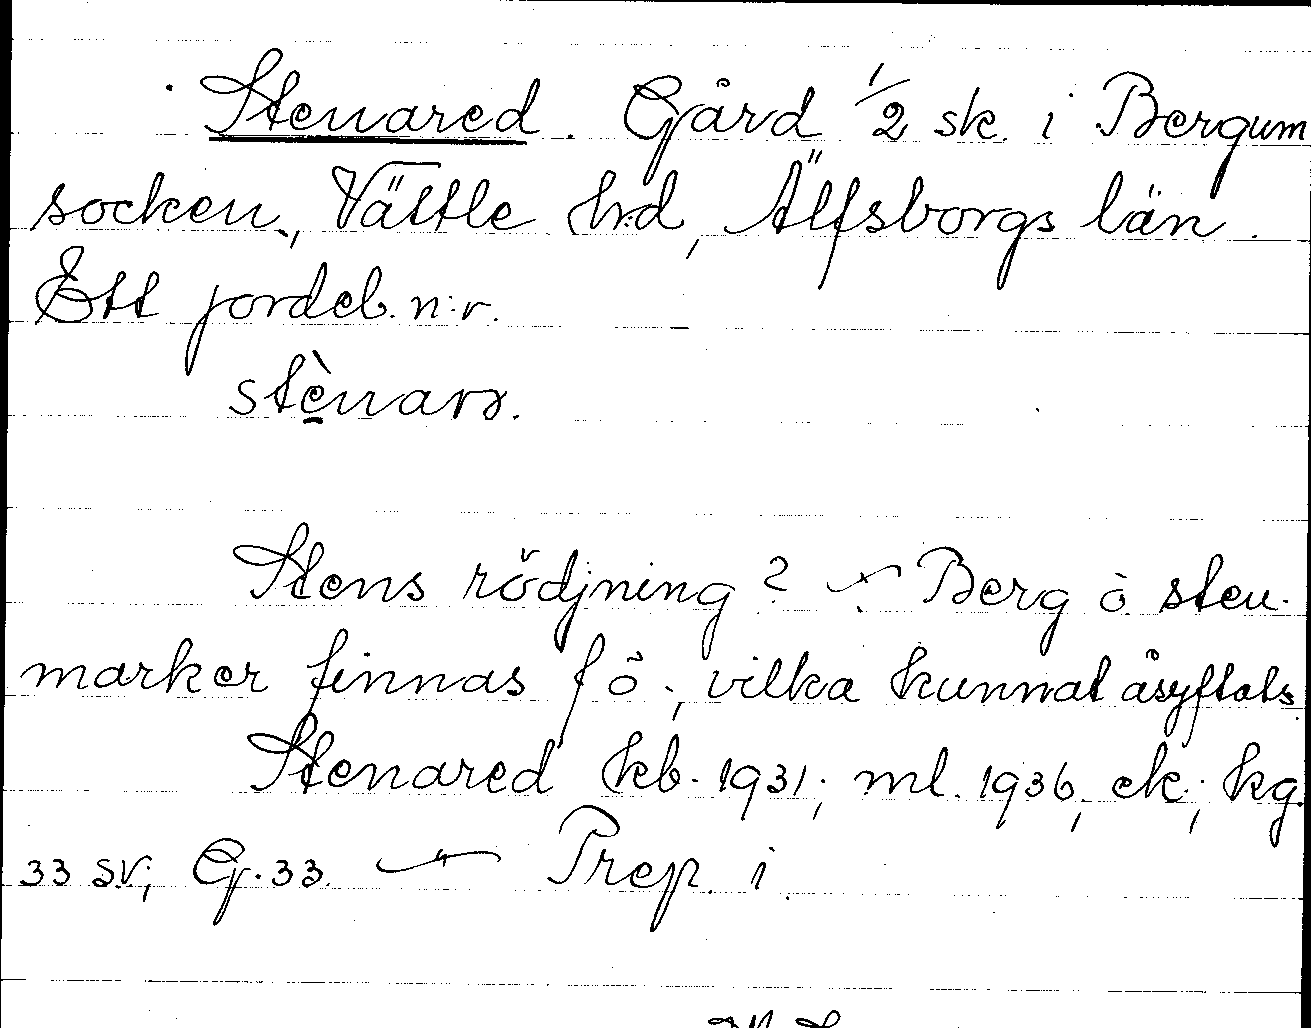 Stenared. Gård 1/2 sk. i Bergum
socken, Vättle hd, Älfsborgs län.
Ett jordeb. n:r.
stènarə.
Stens rödjning? — Berg o sten-
marker finnas f ö., vilka kunnat åsyftats.
Stenared kb. 1931; ml. 1936, ek.; kg.
33 sv.; G. 33. — Prep. i.